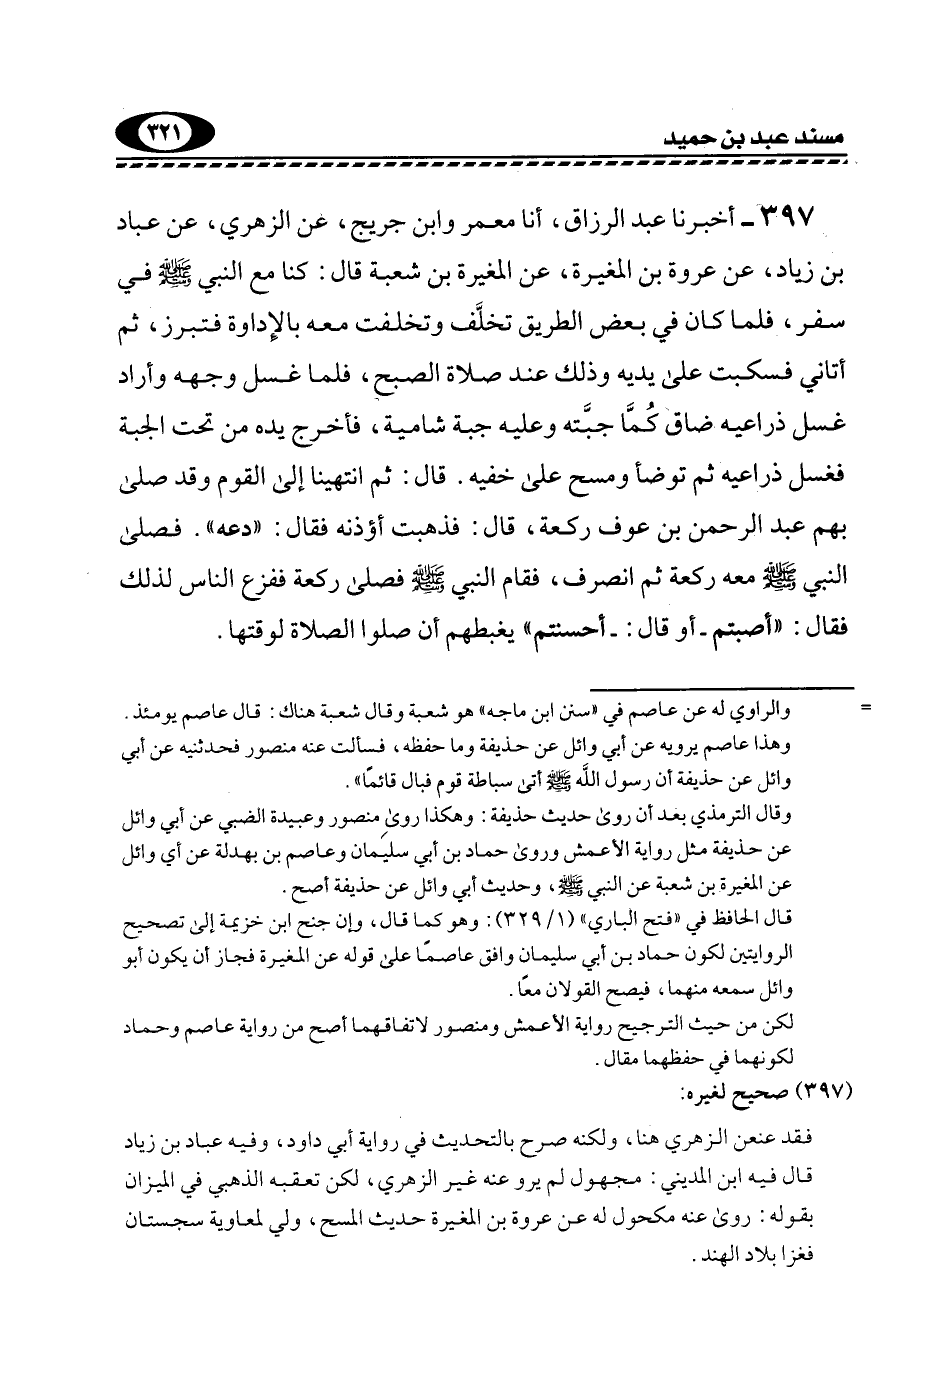 مسند عبد بن حميد
٣٢١
٣٩٧ ـ أخبرنا عبد الرزاق، أنا معمر وابن جريج، عن الزهري، عن عباد
بن زياد، عن عروة بن المغيرة، عن المغيرة بن شعبة قال: كنا مع النبي ﷺ في
سفر، فلما كان في بعض الطريق تخلَّف وتخلفت معه بالإداوة فتبرز، ثم
أتاني فسكبت علىٰ يديه وذلك عند صلاة الصبح، فلما غسل وجهه وأراد
غسل ذراعيه ضاق كُمَّا جبَّته وعليه جبة شامية، فأخرج يده من تحت الجبة
فغسل ذراعيه ثم توضأ ومسح علىٰ خفيه. قال: ثم انتهينا إلىٰ القوم وقد صلىٰ
بهم عبد الرحمن بن عوف ركعة، قال: فذهبت أؤذنه فقال: «دعه». فصلىٰ
النبي ﷺ معه ركعة ثم انصرف، فقام النبي ﷺ فصلىٰ ركعة ففزع الناس لذلك
فقال: «أصبتم ـ أو قال: ـ أحسنتم» يغبطهم أن صلوا الصلاة لوقتها.
= والراوي له عن عاصم في «سنن ابن ماجه» هو شعبة وقال شعبة هناك: قال عاصم يومئذ.
وهذا عاصم يرويه عن أبي وائل عن حذيفة وما حفظه، فسألت عنه منصور فحدثنيه عن أبي
وائل عن حذيفة أن رسول اللَّه ﷺ أتىٰ سباطة قوم فبال قائمًا».
وقال الترمذي بعد أن روىٰ حديث حذيفة: وهكذا روىٰ منصور وعبيدة الضبي عن أبي وائل
عن حذيفة مثل رواية الأعمش وروىٰ حماد بن أبي سليمان وعاصم بن بهدلة عن أي وائل
عن المغيرة بن شعبة عن النبي ﷺ، وحديث أبي وائل عن حذيفة أصح.
قال الحافظ في «فتح الباري» (١/ ٣٢٩): وهو كما قال، وإن جنح ابن خزيمة إلىٰ تصحيح
الروايتين لكون حماد بن أبي سليمان وافق عاصمًا علىٰ قوله عن المغيرة فجاز أن يكون أبو
وائل سمعه منهما، فيصح القولان معًا.
لكن من حيث الترجيح رواية الأعمش ومنصور لاتفاقهما أصح من رواية عاصم وحماد
لكونهما في حفظهما مقال.
(٣٩٧) صحيح لغيره:
فقد عنعن الزهري هنا، ولكنه صرح بالتحديث في رواية أبي داود، وفيه عباد بن زياد
قال فيه ابن المديني: مجهول لم يرو عنه غير الزهري، لكن تعقبه الذهبي في الميزان
بقوله: روىٰ عنه مكحول له عن عروة بن المغيرة حديث المسح، ولي لمعاوية سجستان
فغزا بلاد الهند.